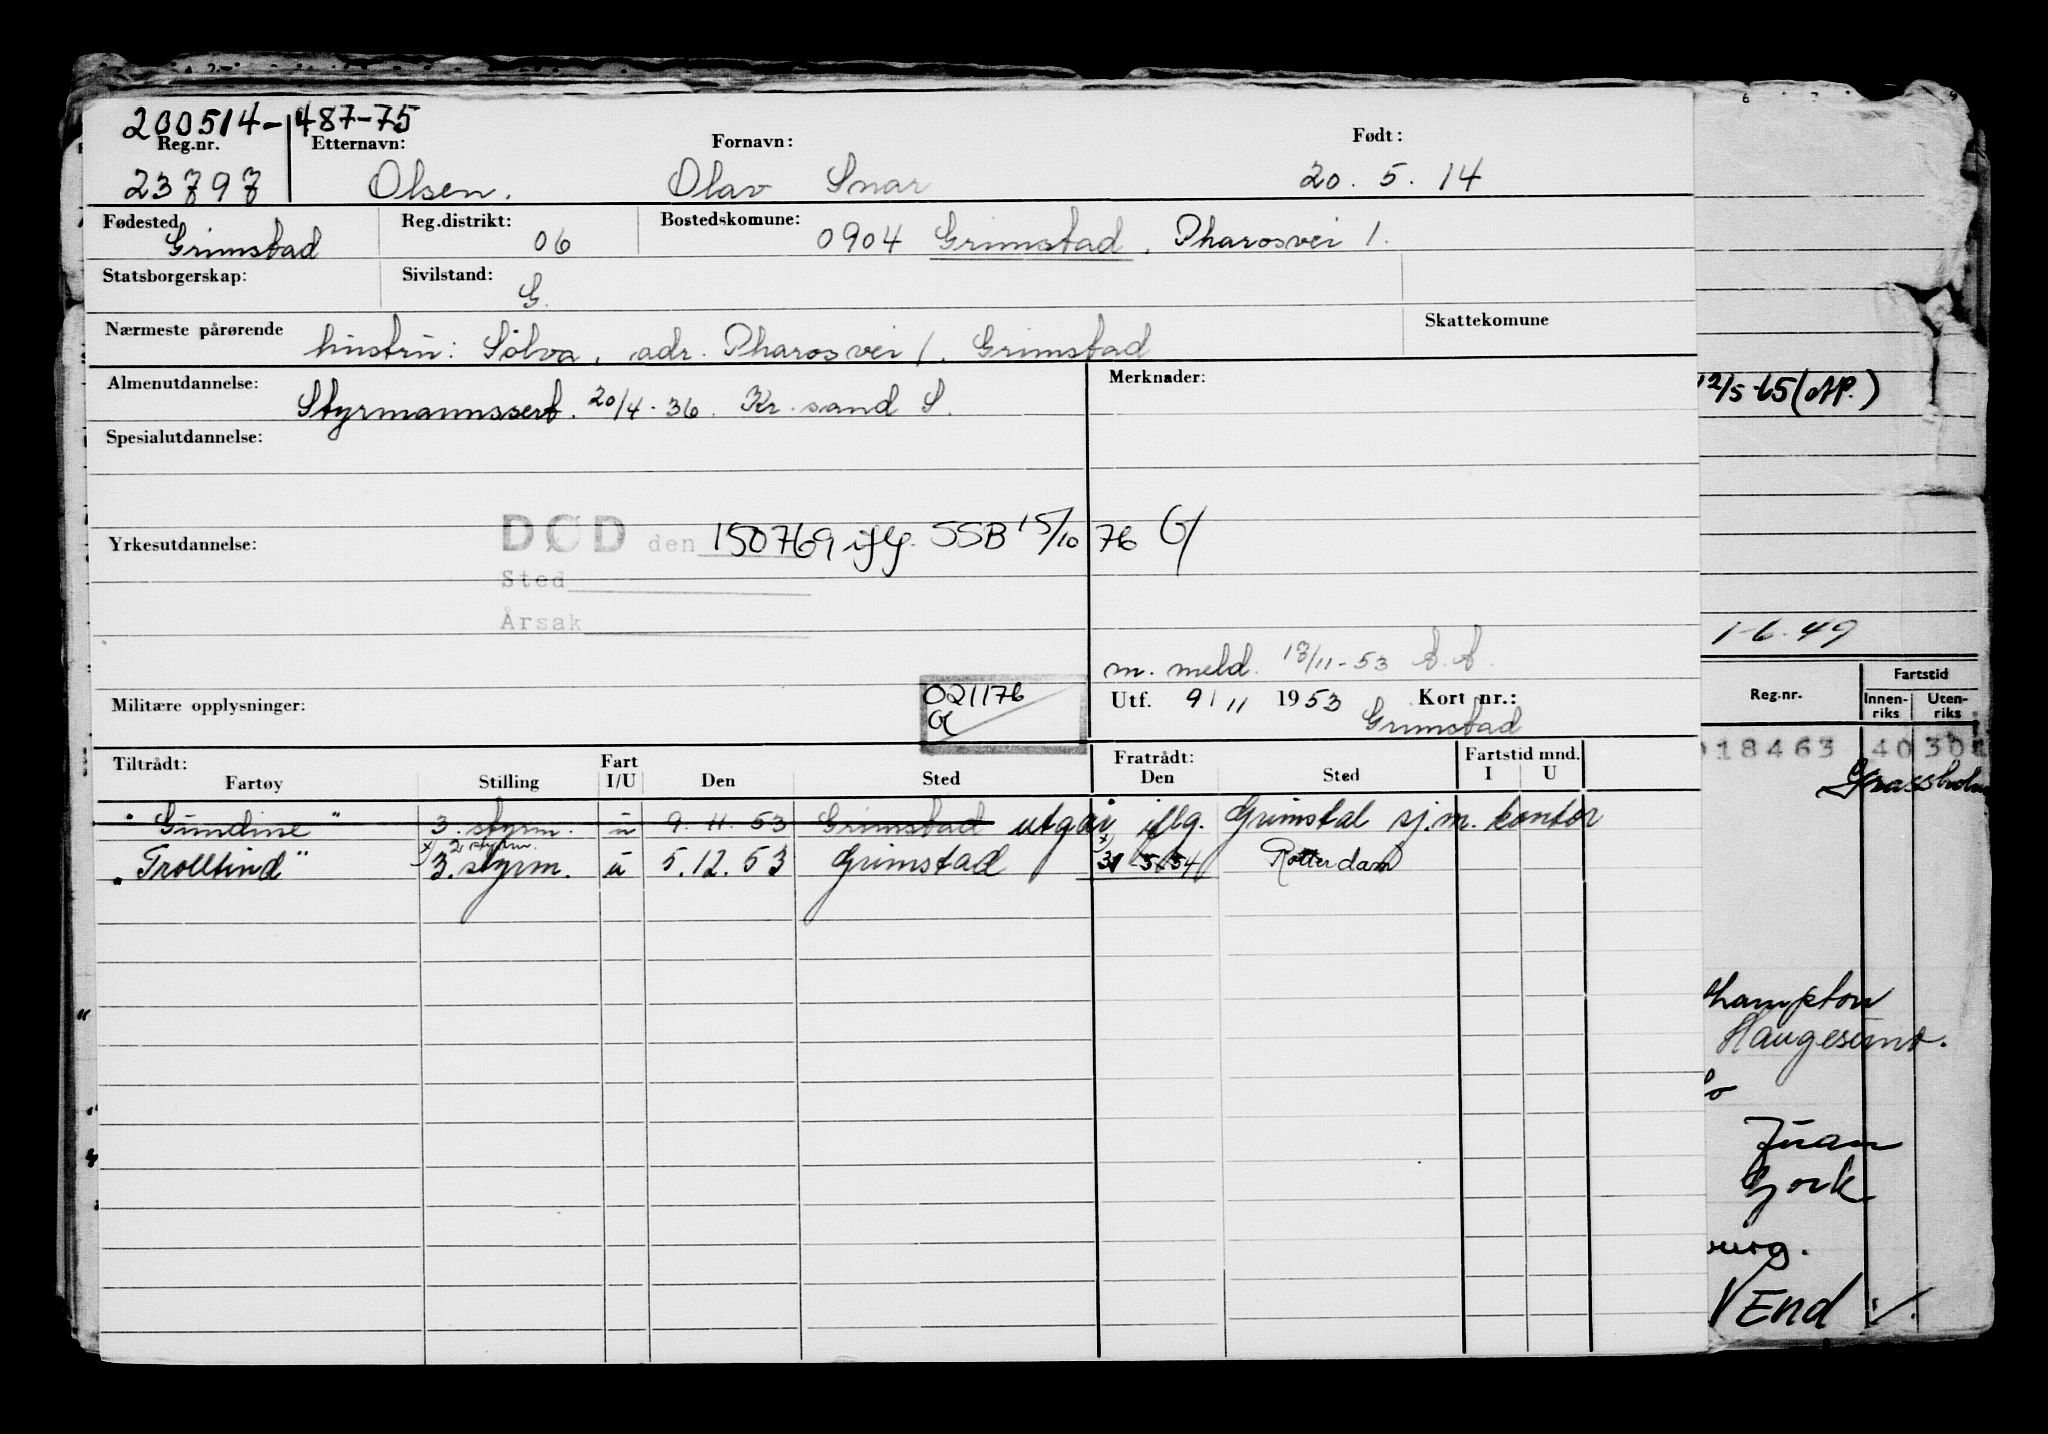 200514-487-75
Reg.nr. Etternavn: Fornavn: Født:
23797 Olsen. Olav Snar 20. 5. 14
Fødested Reg.distrikt: Bostedskomune:
Grimstad 06 0904 Grimstad, Pharosvei 1.
Statsborgerskap: Sivilstand:
G.
Nærmeste pårørende Skattekomune
hustru: Sölva, adr. Pharosvei 1, Grimstad
Almenutdannelse: Merknader:
Styrmannssert. 20/4-36. Kr.sand S.
12/5-65 (
Spesialutdannelse:
Yrkesutdannelse:
DØD den 150769 iflg. SSB 15/10 76 G
Sted
Årsak
1-6.49
m. meld. 18/11-53 A.A.
Militære opplysninger: 021176 Utf. 9/11 1953 Kort nr.:
Grimstad
Reg.nr. Fartstid
Innen-riks Uten-riks
18463 40 30
Grassholm
Tiltrådt: Fratrådt: Fartstid mnd.
Fartøy Stilling Fart I/U Den Sted Den Sted I U
"Gundine" 3. styrm. u 9.11.53 Grimstad utgår iflg. Grimstad sj.m. kontor
x) 2 styrm. x)
"Trolltind" 3. styrm. u 5.12.53 Grimstad 31-5-54 Rotterdam
hampton
Haugesund.
Juan
York
burg.
End